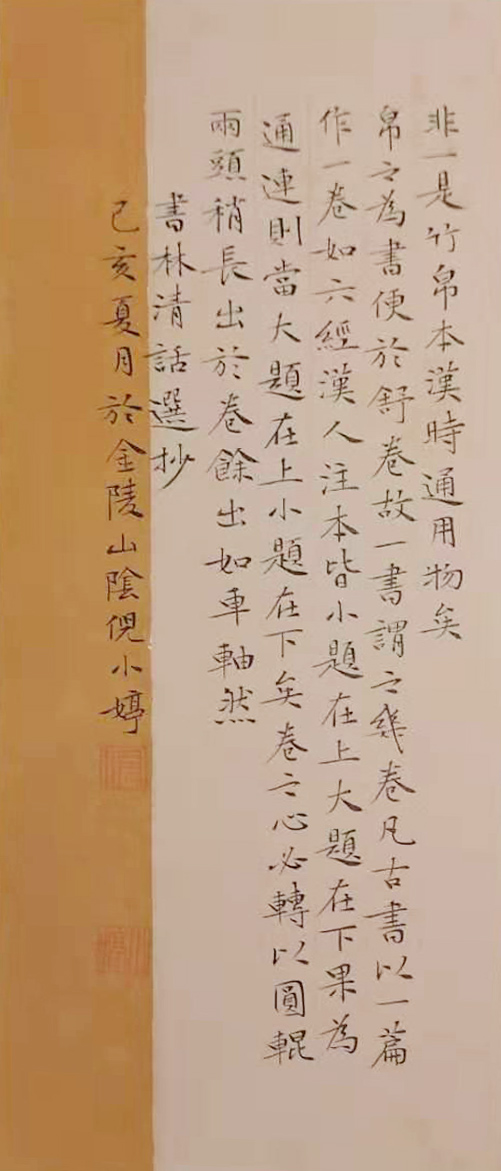 非一是竹帛本漢時通用物矣
帛之為書便於舒卷故一書謂之幾卷凡古書以一篇
作一卷如六經漢人注本皆小題在上大題在下果為
通連則當大題在上小題在下矣卷之心必轉以圓輥
兩頭稍長出於卷餘出如車軸然
書林清話選抄
己亥夏月於金陵山陰倪小婷